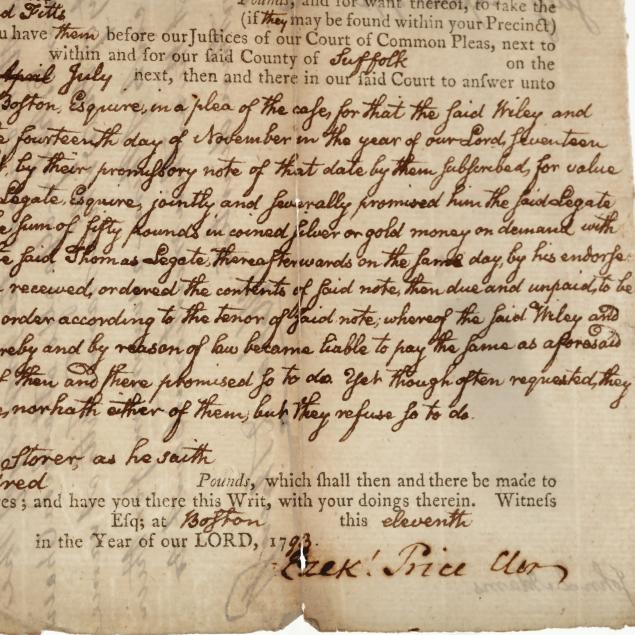 Pounds, and for want thereof, to take the
d Fitts (if they may be found within your Precinct)
u have them before our Justices of our Court of Common Pleas, next to
within and for our said County of Suffolk on the
April July next, then and there in our said Court to answer unto
Boston, Esquire, in a plea of the case, for that the said Wiley and
e fourteenth day of November in the year of our Lord, seventeen
by their promissory note of that date by them subscribed, for value
Legate, Esquire, jointly and severally promised him the said Legate
e sum of fifty pounds in coined silver or gold money on demand with
e said Thomas Legate, thereafterwards on the same day, by his endorse
received, ordered the contents of said note, then due and unpaid, to be
order according to the tenor of said note; whereof the said Wiley and
reby and by reason of law became liable to pay the same as aforesaid
f then and there promised so to do. Yet though often requested, they
, nor hath either of them, but they refuse so to do.
Storer, as he saith
red Pounds, which shall then and there be made to
es; and have you there this Writ, with your doings therein. Witness
Esq; at Boston this eleventh
in the Year of our LORD, 1793.
Ezek! Price Cler